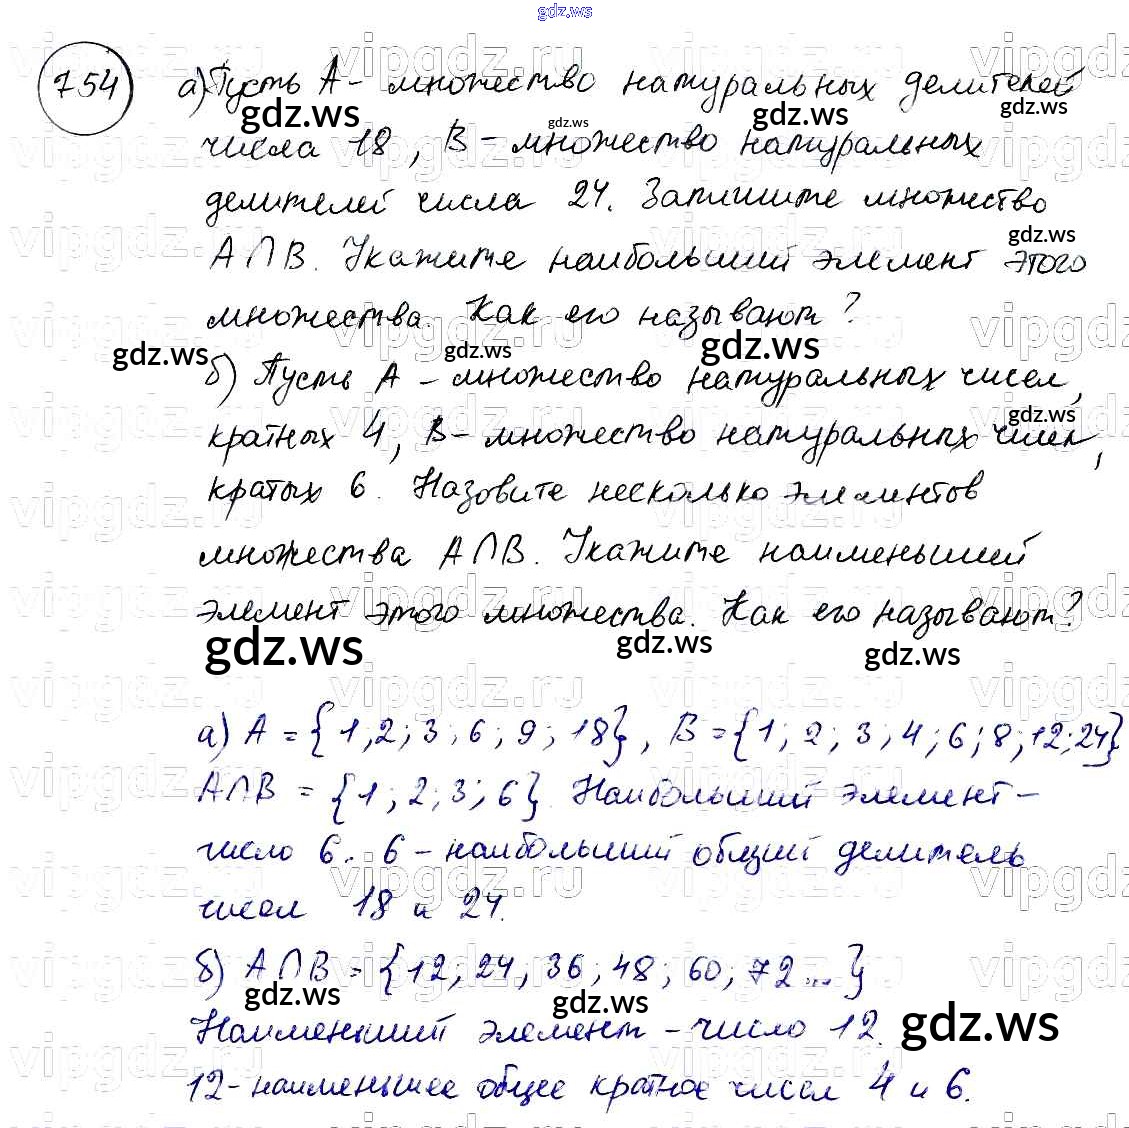 gdz.ws
754 а) Пусть A - множество натуральных делителей
числа 18, B - множество натуральных
делителей числа 24. Запишите множество
A∩B. Укажите наибольший элемент этого
множества. Как его называют?
б) Пусть A - множество натуральных чисел,
кратных 4, B - множество натуральных чисел,
кратых 6. Назовите несколько элементов
множества A∩B. Укажите наименьший
элемент этого множества. Как его называют?
gdz.ws
а) A = {1; 2; 3; 6; 9; 18}, B = {1; 2; 3; 4; 6; 8; 12; 24}
A∩B = {1; 2; 3; 6}. Наибольший элемент -
число 6. 6 - наибольший общий делитель
чисел 18 и 24.
б) A∩B = {12; 24; 36; 48; 60; 72 ...}
Наименьший элемент - число 12.
12 - наименьшее общее кратное чисел 4 и 6.
vipgdz.ru